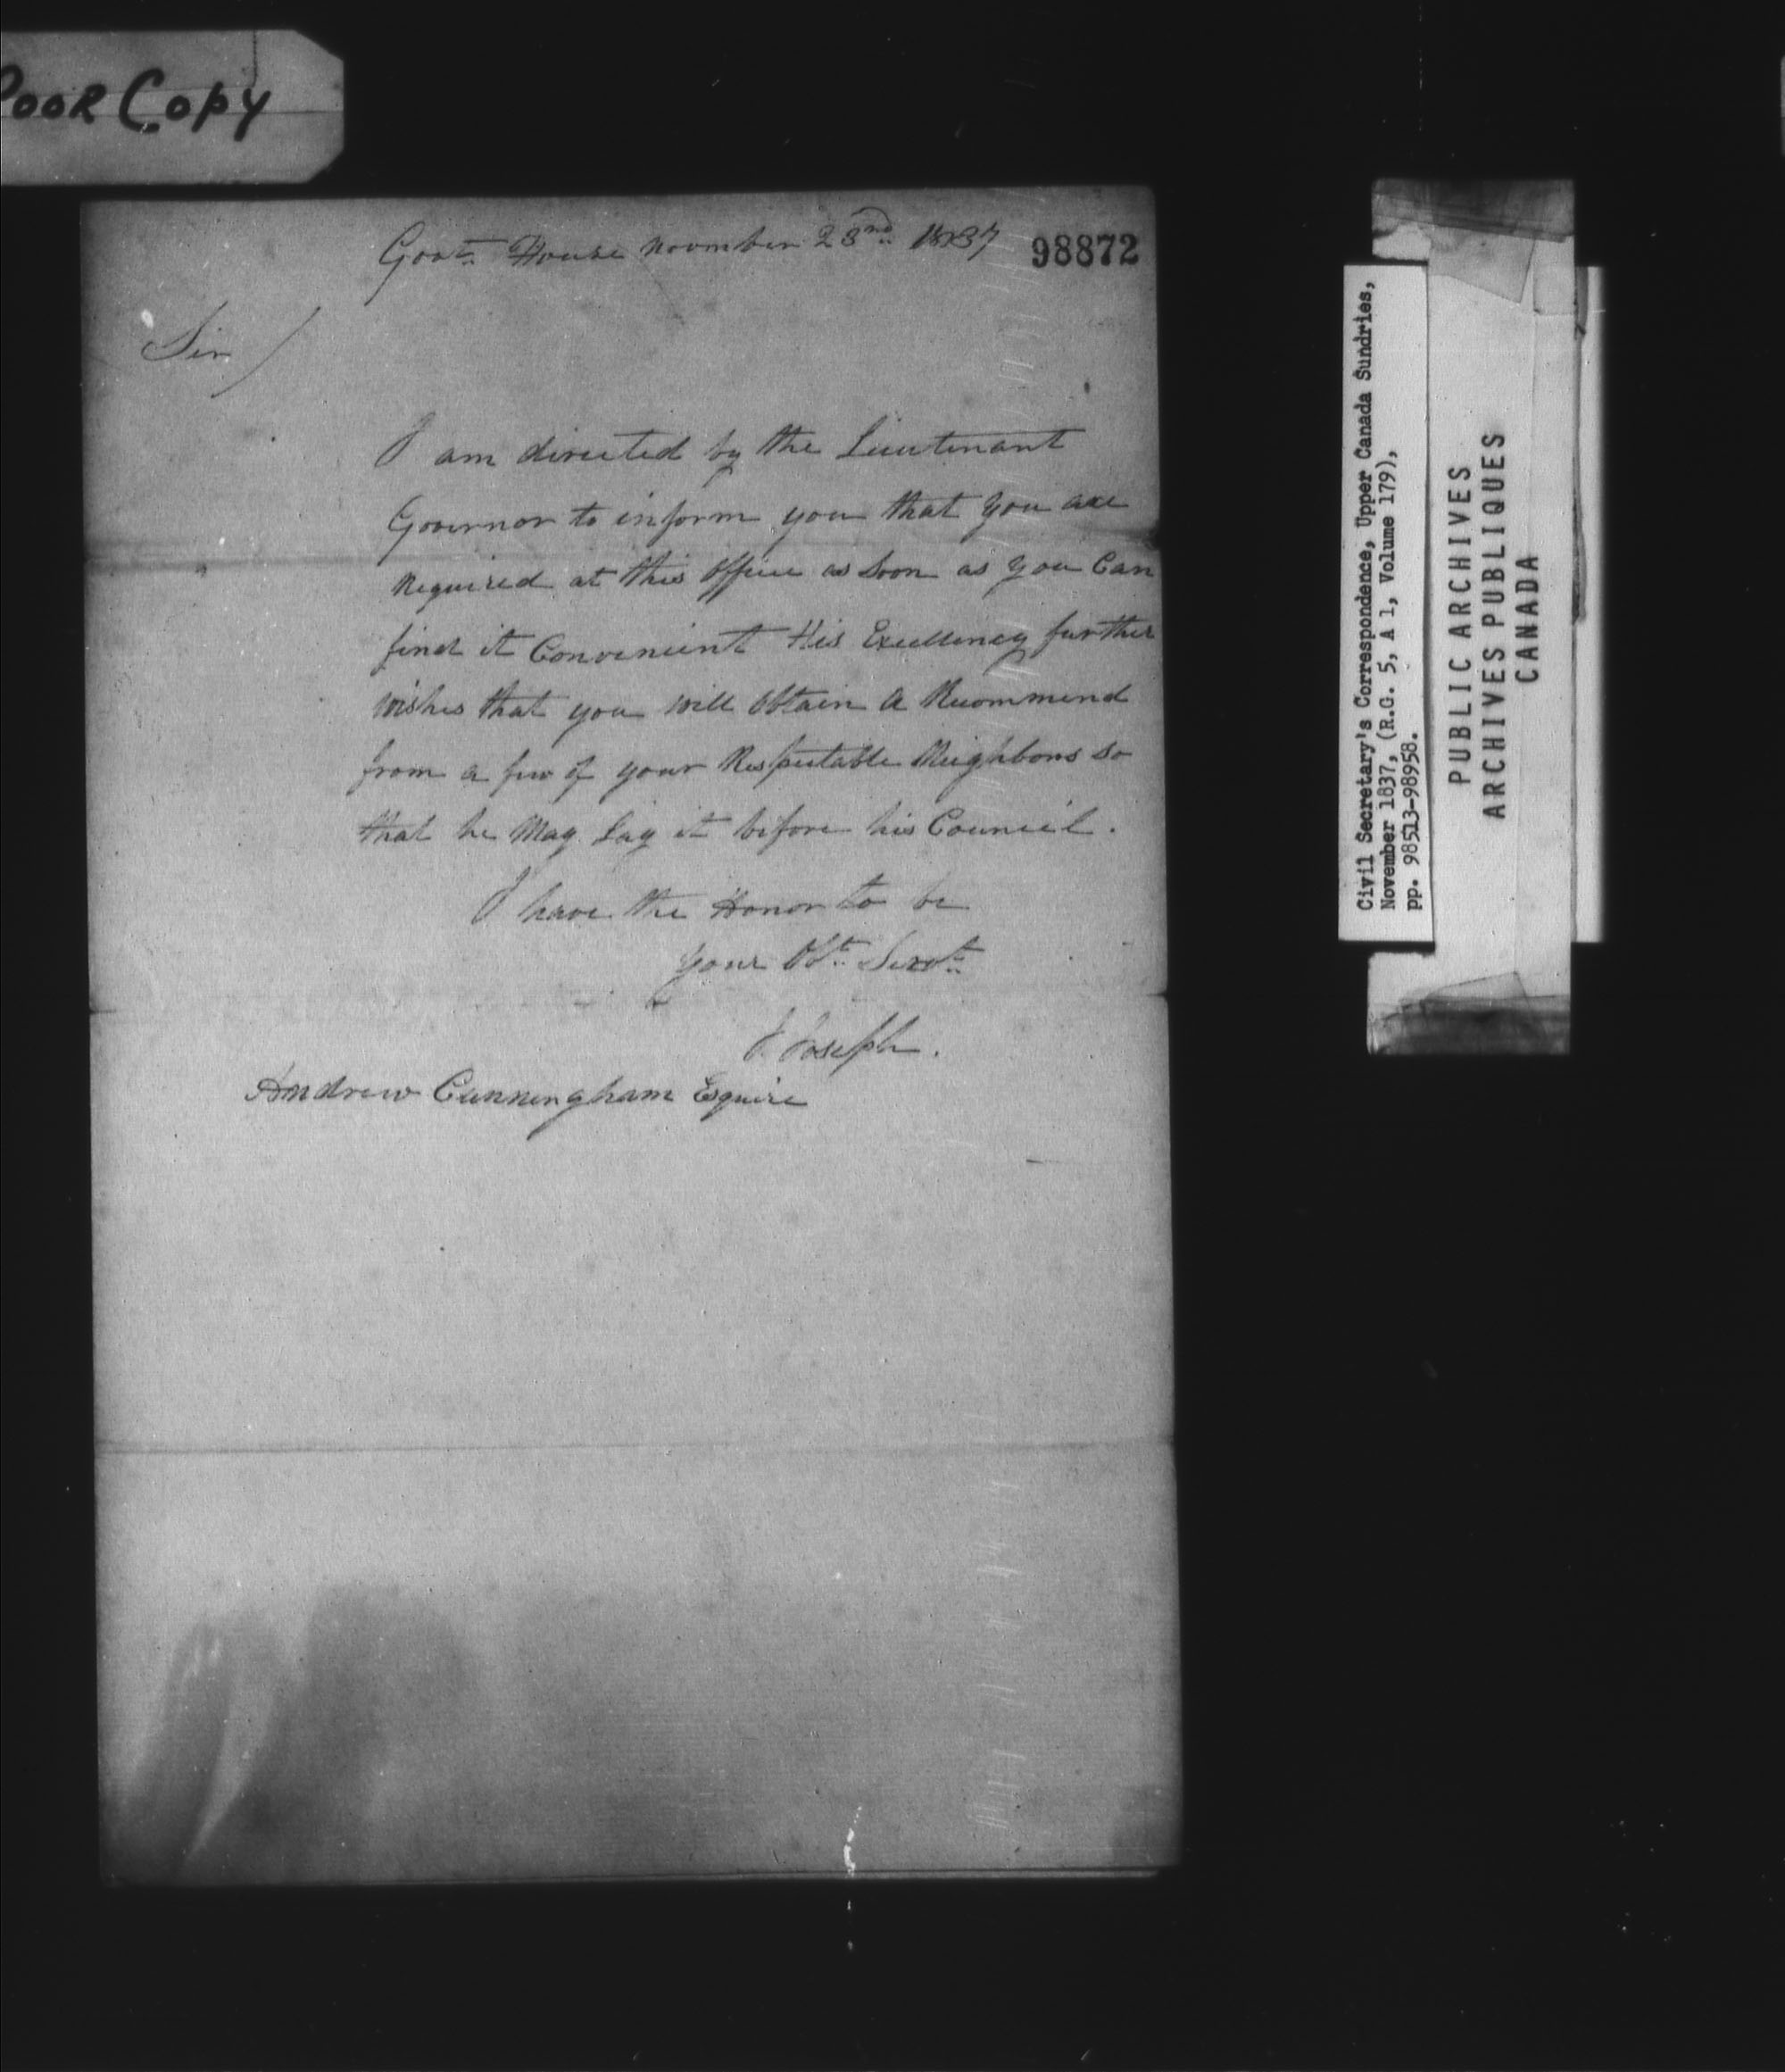 Poor Copy
Govt. House Novmber 23nd. 1837
98872
Sir
I am directed by the Lieutenant
Governor to inform you that you are
Required at this Office as Soon as you Can
find it Convenient His Excellency further
wishes that you will Obtain A Recommend
from a few of your Respectable Neighbors So
that he May Lay it before his Council.
I have the Honor to be
your Obt. Servt.
J Joseph.
Andrew Cunningham Esquire
Civil Secretary's Correspondence, Upper Canada Sundries,
November 1837, (R.G. 5, A 1, Volume 179),
pp. 98513-98958.
PUBLIC ARCHIVES
ARCHIVES PUBLIQUES
CANADA